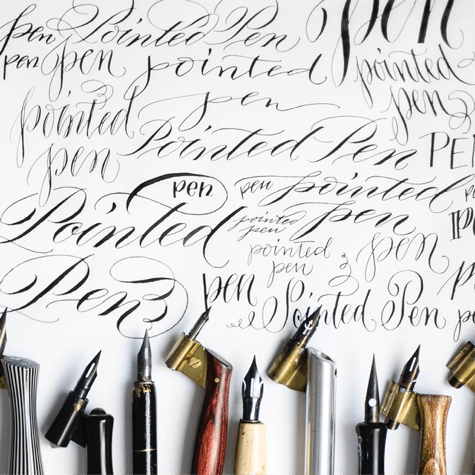 pen Pointed Pen pen
pen pen pointed pointed
pen pen
pointed
pen Pointed Pen PEN
pen pen pointed
Pointed pointed pen pen
pointed pen
pen
Pen pen Pointed Pen